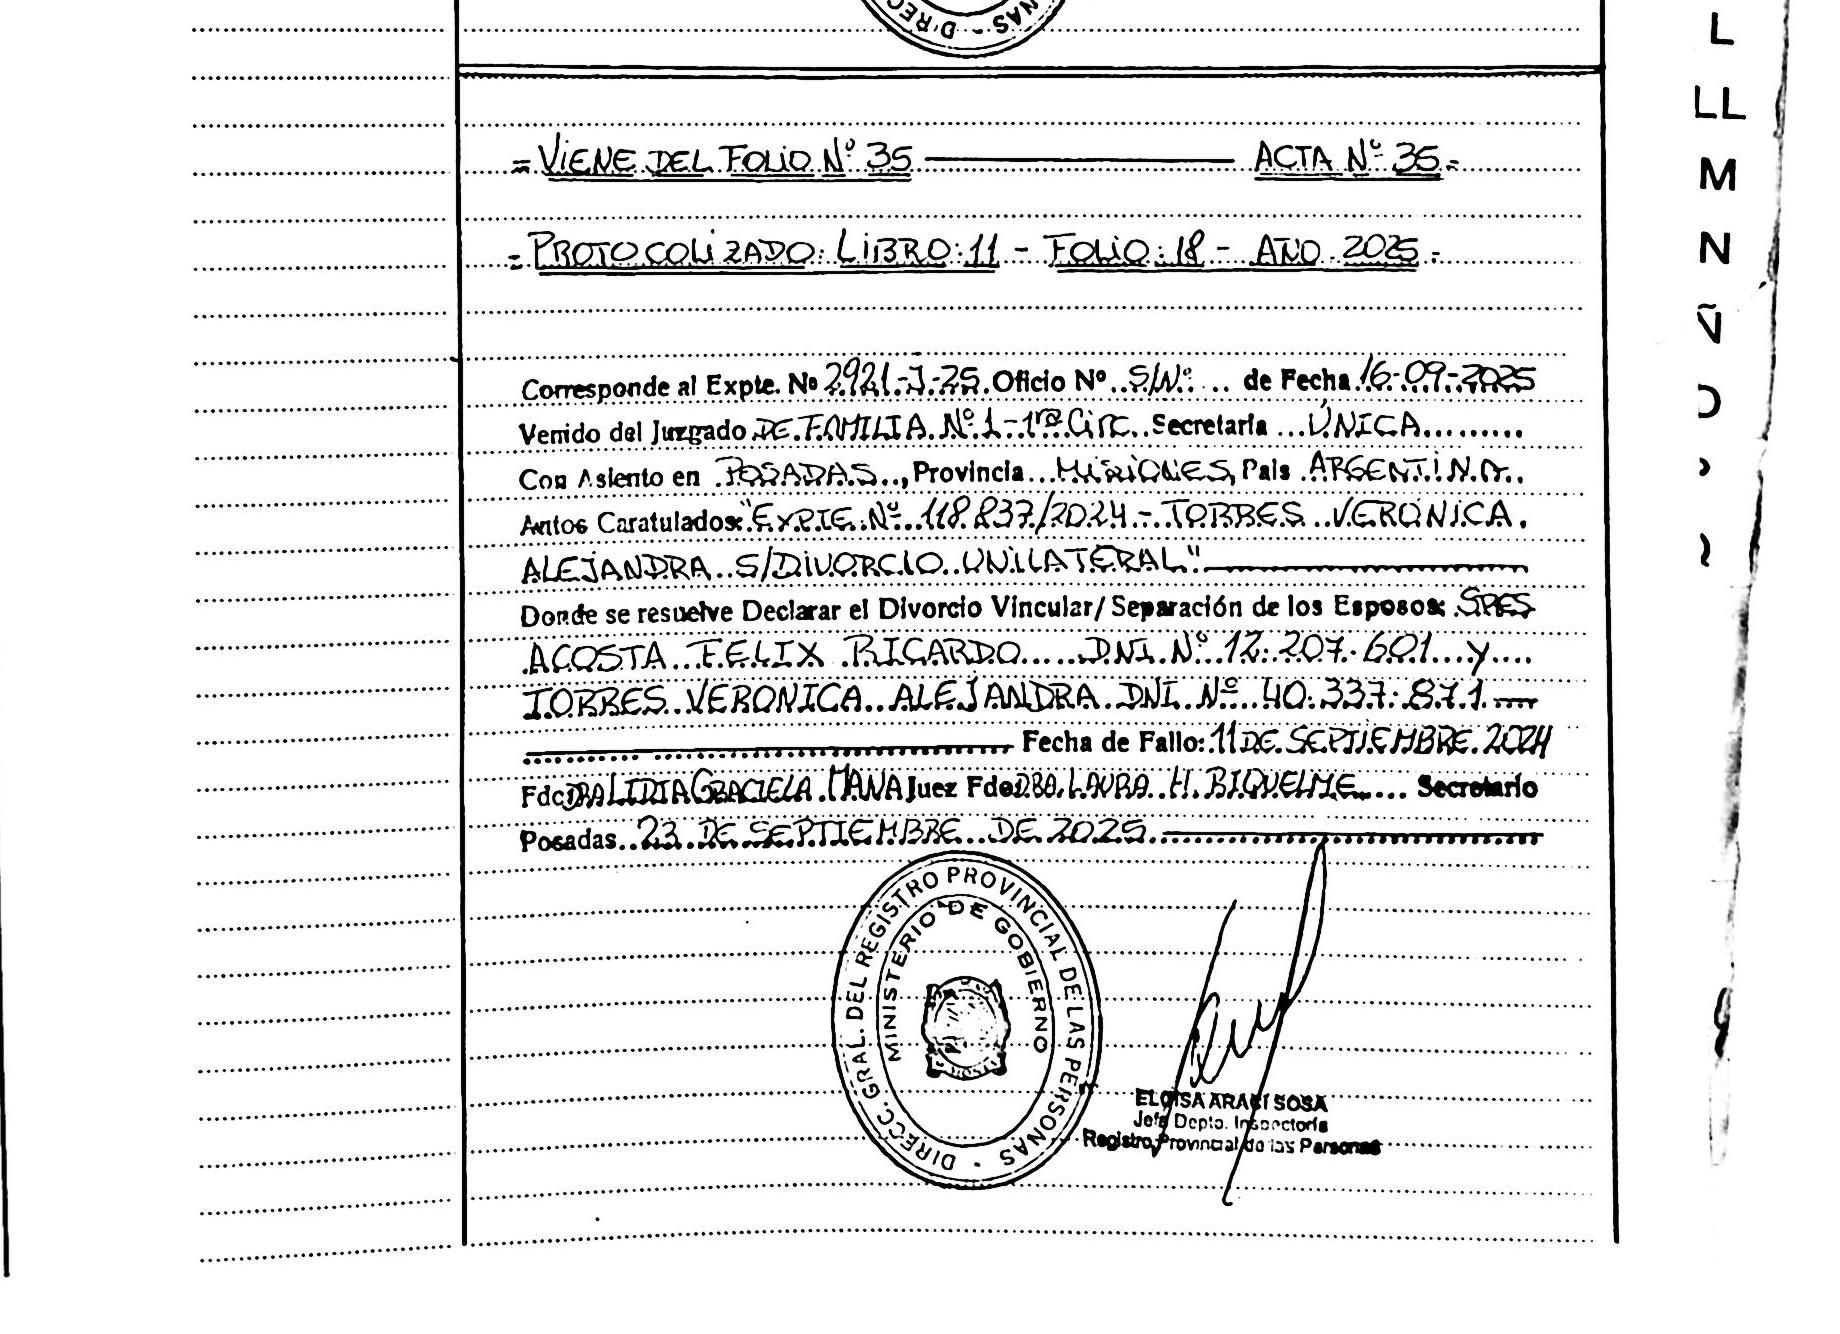 DIRECC. NAS -
= VIENE DEL FOLIO Nº 35 ACTA Nº 35.-
= PROTOCOLIZADO: LIBRO: 11 - FOLIO: 18 - AÑO 2025.-
Corresponde al Expte. Nº 2921-J-25. Oficio Nº S/Nº. de Fecha 16-09-2025
Venido del Juzgado DE FAMILIA Nº 1-1ra Circ. Secretaría ÚNICA
Con Asiento en POSADAS, Provincia MISIONES, País ARGENTINA.
Autos Caratulados: "EXPTE. Nº 118.837/2024 - TORRES VERONICA
ALEJANDRA S/DIVORCIO UNILATERAL"
Donde se resuelve Declarar el Divorcio Vincular/ Separación de los Esposos: SRES
ACOSTA FELIX RICARDO DNI Nº 12.207.601 y
TORRES VERONICA ALEJANDRA DNI Nº 40.337.871
Fecha de Fallo: 11 DE SEPTIEMBRE 2024
Fdo: DRA LIDIA GRACIELA MANA Juez Fdo: DRA. LAURA H. RIQUELME Secretario
Posadas 23 DE SEPTIEMBRE DE 2025.
DIRECC. GRAL. DEL REGISTRO PROVINCIAL DE LAS PERSONAS -
MINISTERIO DE GOBIERNO
ELOISA ARACI SOSA
Jefa Depto. Inspectoría
Registro Provincial de las Personas
L
LL
M
N
Ñ